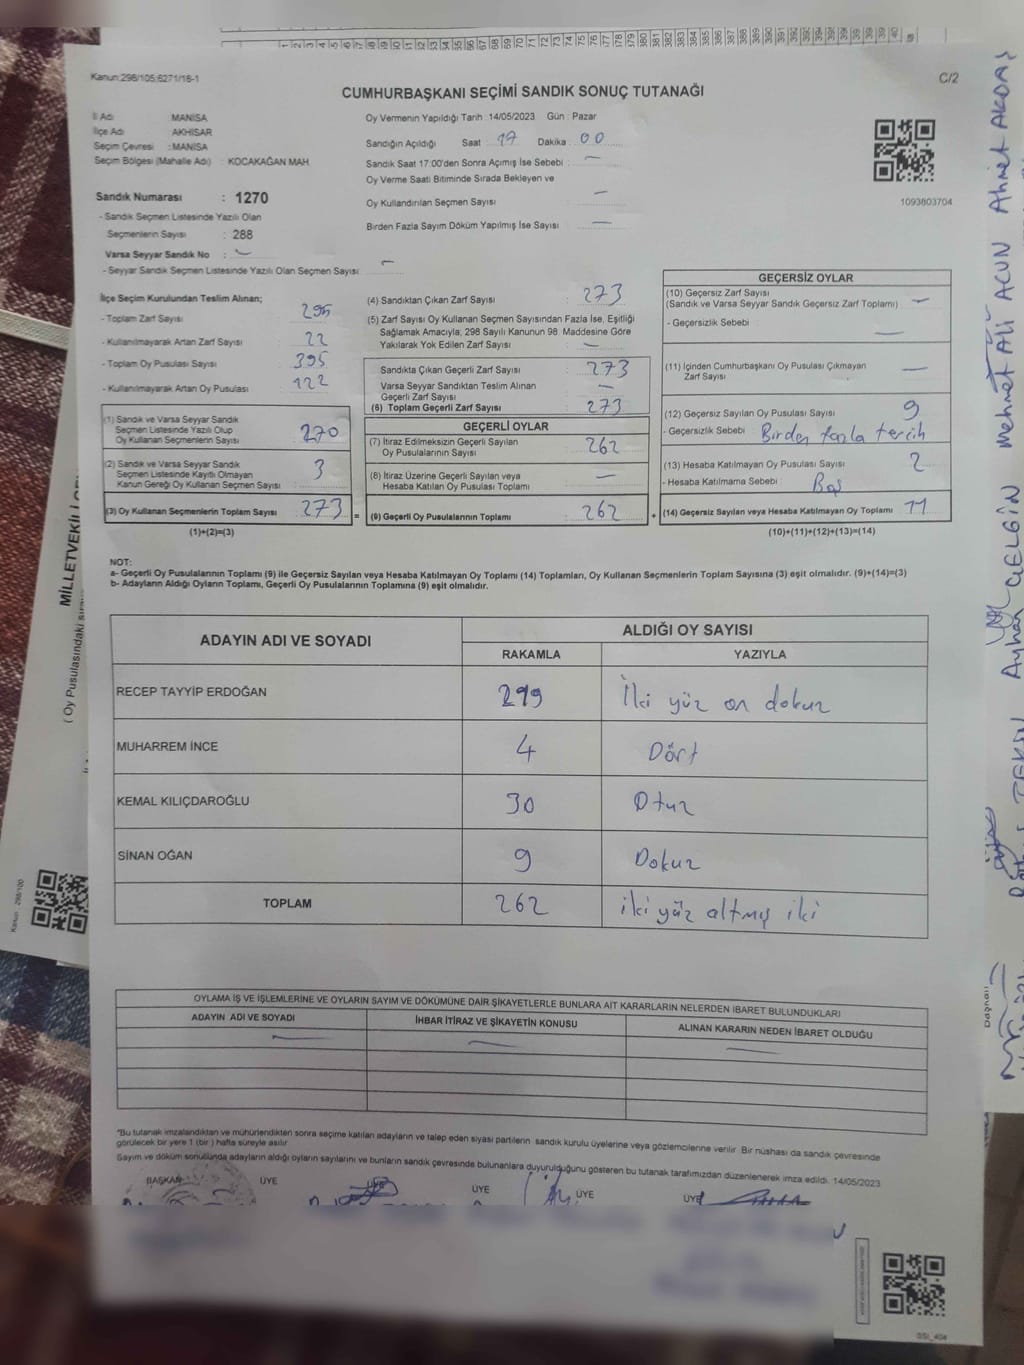 Kanun:298/105;6271/18-1
C/2
CUMHURBAŞKANI SEÇİMİ SANDIK SONUÇ TUTANAĞI
İl Adı MANİSA
İlçe Adı AKHİSAR
Seçim Çevresi : MANİSA
Seçim Bölgesi (Mahalle Adı) : KOCAKAĞAN MAH.
Sandık Numarası : 1270
- Sandık Seçmen Listesinde Yazılı Olan
Seçmenlerin Sayısı : 288
Varsa Seyyar Sandık No : -
- Seyyar Sandık Seçmen Listesinde Yazılı Olan Seçmen Sayısı: -
Oy Vermenin Yapıldığı Tarih : 14/05/2023 Gün : Pazar
Sandığın Açıldığı Saat : 17 Dakika : 00
Sandık Saat 17:00'den Sonra Açımış İse Sebebi : -
Oy Verme Saati Bitiminde Sırada Bekleyen ve
Oy Kullandırılan Seçmen Sayısı : -
Birden Fazla Sayım Döküm Yapılmış İse Sayısı : -
1093803704
İlçe Seçim Kurulundan Teslim Alınan;
- Toplam Zarf Sayısı 295
- Kullanılmayarak Artan Zarf Sayısı 22
- Toplam Oy Pusulası Sayısı 395
- Kullanılmayarak Artan Oy Pusulası 122
(1) Sandık ve Varsa Seyyar Sandık
Seçmen Listesinde Yazılı Olup
Oy Kullanan Seçmenlerin Sayısı : 270
(2) Sandık ve Varsa Seyyar Sandık
Seçmen Listesinde Kayıtlı Olmayan
Kanun Gereği Oy Kullanan Seçmen Sayısı : 3
(3) Oy Kullanan Seçmenlerin Toplam Sayısı : 273 =
(1)+(2)=(3)
(4) Sandıktan Çıkan Zarf Sayısı : 273
(5) Zarf Sayısı Oy Kullanan Seçmen Sayısından Fazla İse, Eşitliği
Sağlamak Amacıyla; 298 Sayılı Kanunun 98. Maddesine Göre
Yakılarak Yok Edilen Zarf Sayısı : -
Sandıkta Çıkan Geçerli Zarf Sayısı : 273
Varsa Seyyar Sandıktan Teslim Alınan
Geçerli Zarf Sayısı : -
(6) Toplam Geçerli Zarf Sayısı : 273
GEÇERLİ OYLAR
(7) İtiraz Edilmeksizin Geçerli Sayılan
Oy Pusulalarının Sayısı : 262
(8) İtiraz Üzerine Geçerli Sayılan veya
Hesaba Katılan Oy Pusulası Toplamı : -
(9) Geçerli Oy Pusulalarının Toplamı : 262 +
GEÇERSİZ OYLAR
(10) Geçersiz Zarf Sayısı : -
(Sandık ve Varsa Seyyar Sandık Geçersiz Zarf Toplamı)
- Geçersizlik Sebebi : -
(11) İçinden Cumhurbaşkanı Oy Pusulası Çıkmayan
Zarf Sayısı : -
(12) Geçersiz Sayılan Oy Pusulası Sayısı : 9
- Geçersizlik Sebebi : Birden fazla tercih
(13) Hesaba Katılmayan Oy Pusulası Sayısı : 2
- Hesaba Katılmama Sebebi : Boş
(14) Geçersiz Sayılan veya Hesaba Katılmayan Oy Toplamı : 11
(10)+(11)+(12)+(13)=(14)
NOT:
a- Geçerli Oy Pusulalarının Toplamı (9) ile Geçersiz Sayılan veya Hesaba Katılmayan Oy Toplamı (14) Toplamları, Oy Kullanan Seçmenlerin Toplam Sayısına (3) eşit olmalıdır. (9)+(14)=(3)
b- Adayların Aldığı Oyların Toplamı, Geçerli Oy Pusulalarının Toplamına (9) eşit olmalıdır.
ADAYIN ADI VE SOYADI ALDIĞI OY SAYISI
RAKAMLA YAZIYLA
RECEP TAYYİP ERDOĞAN 219 İki yüz on dokuz
MUHARREM İNCE 4 Dört
KEMAL KILIÇDAROĞLU 30 Otuz
SİNAN OĞAN 9 Dokuz
TOPLAM 262 iki yüz altmış iki
OYLAMA İŞ VE İŞLEMLERİNE VE OYLARIN SAYIM VE DÖKÜMÜNE DAİR ŞİKAYETLERLE BUNLARA AİT KARARLARIN NELERDEN İBARET BULUNDUKLARI
ADAYIN ADI VE SOYADI İHBAR İTİRAZ VE ŞİKAYETİN KONUSU ALINAN KARARIN NEDEN İBARET OLDUĞU
*Bu tutanak imzalandıktan ve mühürlendikten sonra seçime katılan adayların ve talep eden siyasi partilerin sandık kurulu üyelerine veya gözlemcilerine verilir. Bir nüshası da sandık çevresinde
görülecek bir yere 1 (bir) hafta süreyle asılır.
Sayım ve döküm sonucunda adayların aldığı oyların sayılarını ve bunların sandık çevresinde bulunanlara duyurulduğunu gösteren bu tutanak tarafımızdan düzenlenerek imza edildi. 14/05/2023
BAŞKAN ÜYE ÜYE ÜYE ÜYE ÜYE
MİLLETVEKİLİ
( Oy Pusulasındaki
Kanun : 298/100
Ayhan GELGİN Mehmet Ali ACUN Ahmet AKDAŞ
TEKİN